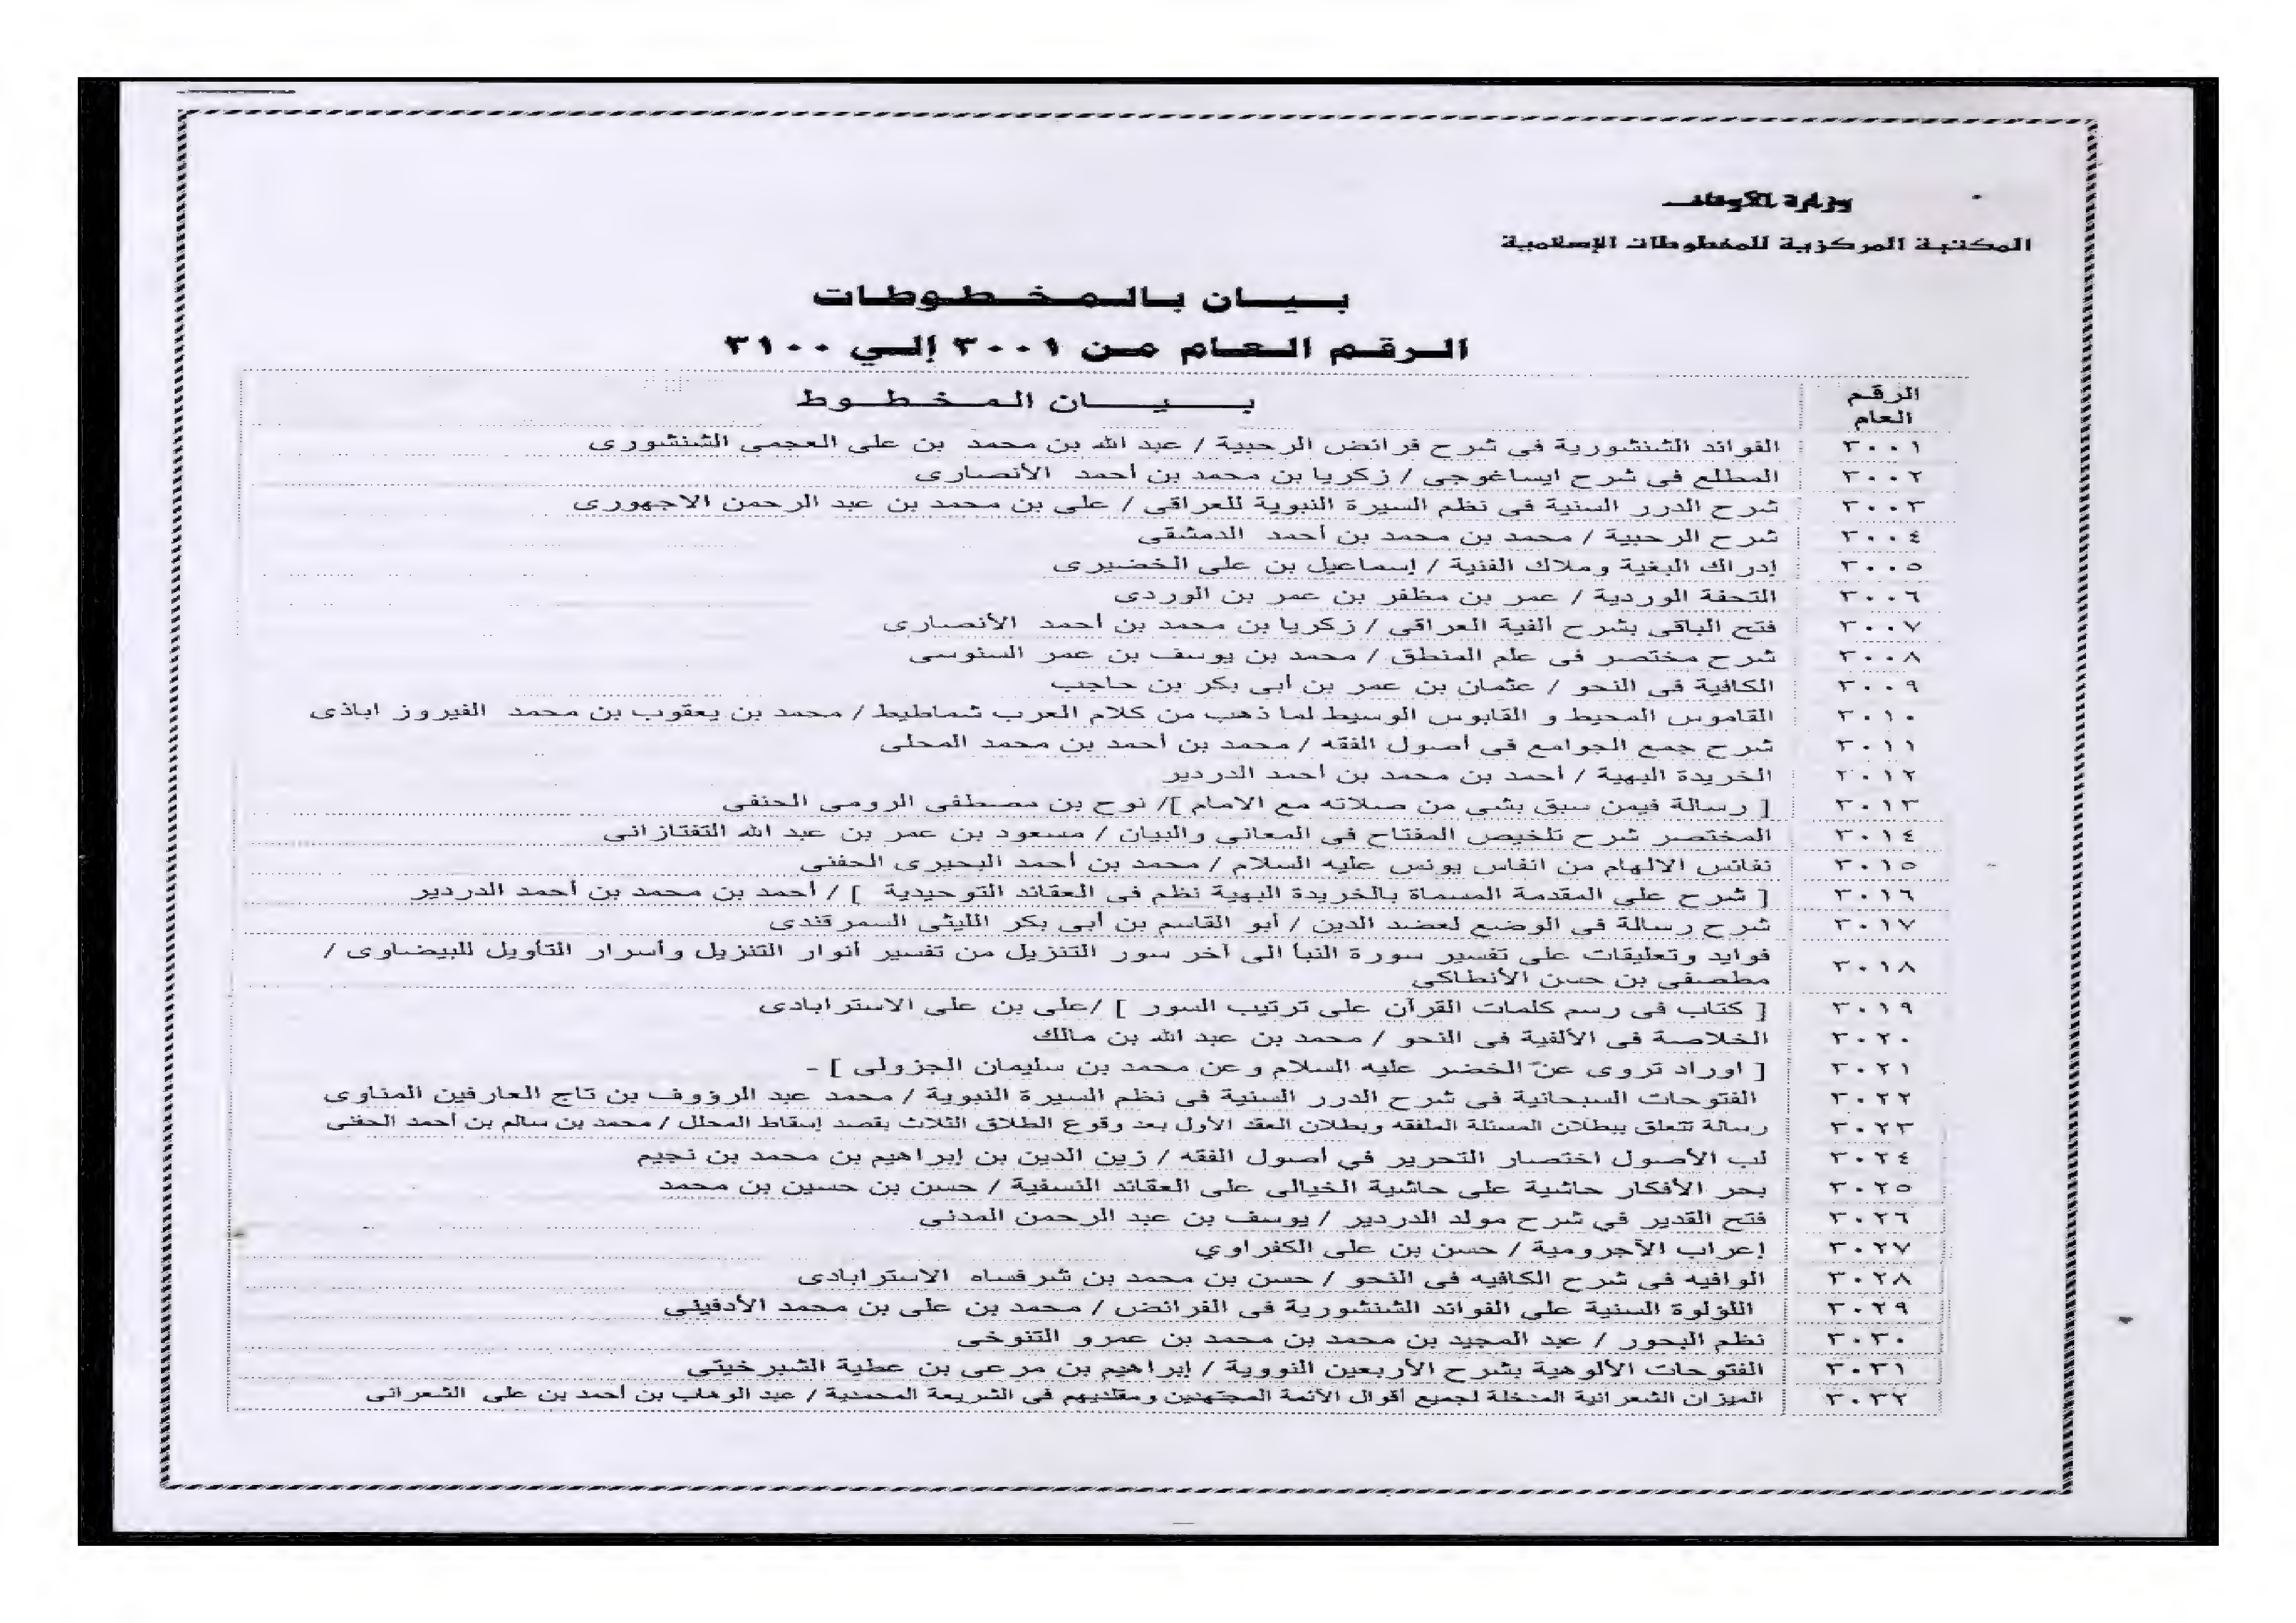 وزارة الأوقاف
المكتبة المركزية للمخطوطات الإسلامية
بيان بالمخطوطات
الرقم العام من ٣٠٠١ إلي ٣١٠٠
الرقم العام
بيان المخطوط
٣٠٠١ الفوائد الشنشورية فى شرح فرائض الرحبية / عبد الله بن محمد بن على العجمى الشنشورى
٣٠٠٢ المطلع فى شرح ايساغوجى / زكريا بن محمد بن أحمد الأنصارى
٣٠٠٣ شرح الدرر السنية فى نظم السيرة النبوية للعراقى / على بن محمد بن عبد الرحمن الاجهورى
٣٠٠٤ شرح الرحبية / محمد بن محمد بن أحمد الدمشقى
٣٠٠٥ إدراك البغية وملاك الفنية / إسماعيل بن على الخضيرى
٣٠٠٦ التحفة الوردية / عمر بن مظفر بن عمر بن الوردى
٣٠٠٧ فتح الباقى بشرح ألفية العراقى / زكريا بن محمد بن أحمد الأنصارى
٣٠٠٨ شرح مختصر فى علم المنطق / محمد بن يوسف بن عمر السنوسى
٣٠٠٩ الكافية فى النحو / عثمان بن عمر بن أبى بكر بن حاجب
٣٠١٠ القاموس المحيط و القابوس الوسيط لما ذهب من كلام العرب شماطيط / محمد بن يعقوب بن محمد الفيروز اباذى
٣٠١١ شرح جمع الجوامع فى أصول الفقه / محمد بن أحمد بن محمد المحلى
٣٠١٢ الخريدة البهية / أحمد بن محمد بن أحمد الدردير
٣٠١٣ [ رسالة فيمن سبق بشى من صلاته مع الامام ]/ نوح بن مصطفى الرومى الحنفى
٣٠١٤ المختصر شرح تلخيص المفتاح في المعاني والبيان / مسعود بن عمر بن عبد الله التفتازانى
٣٠١٥ نفائس الالهام من انفاس يونس عليه السلام / محمد بن أحمد البحيرى الحفنى
٣٠١٦ [ شرح على المقدمة المسماة بالخريدة البهية نظم فى العقائد التوحيدية ] / أحمد بن محمد بن أحمد الدردير
٣٠١٧ شرح رسالة فى الوضع لعضد الدين / أبو القاسم بن أبى بكر الليثى السمرقندى
٣٠١٨ فوايد وتعليقات على تفسير سورة النبأ الى آخر سور التنزيل من تفسير أنوار التنزيل وأسرار التأويل للبيضاوى /
مطصفى بن حسن الأنطاكي
٣٠١٩ [ كتاب فى رسم كلمات القرآن على ترتيب السور ] /على بن على الاسترابادى
٣٠٢٠ الخلاصة فى الألفية فى النحو / محمد بن عبد الله بن مالك
٣٠٢١ [ اوراد تروى عن الخضر عليه السلام وعن محمد بن سليمان الجزولى ] -
٣٠٢٢ الفتوحات السبحانية فى شرح الدرر السنية فى نظم السيرة النبوية / محمد عبد الرؤوف بن تاج العارفين المناوى
٣٠٢٣ رسالة تتعلق ببطلان المسئلة الملفقه وبطلان العقد الأول بعد وقوع الطلاق الثلاث بقصد إسقاط المحلل / محمد بن سالم بن أحمد الحفنى
٣٠٢٤ لب الأصول اختصار التحرير في أصول الفقه / زين الدين بن إبراهيم بن محمد بن نجيم
٣٠٢٥ بحر الأفكار حاشية على حاشية الخيالى على العقائد النسفية / حسن بن حسين بن محمد
٣٠٢٦ فتح القدير في شرح مولد الدردير / يوسف بن عبد الرحمن المدنى
٣٠٢٧ إعراب الآجرومية / حسن بن على الكفراوي
٣٠٢٨ الوافيه فى شرح الكافيه فى النحو / حسن بن محمد بن شرفساه الاسترابادى
٣٠٢٩ اللؤلوة السنية على الفوائد الشنشورية فى الفرائض / محمد بن على بن محمد الأدفينى
٣٠٣٠ نظم البحور / عبد المجيد بن محمد بن محمد بن عمرو التنوخى
٣٠٣١ الفتوحات الألوهية بشرح الأربعين النووية / إبراهيم بن مرعى بن عطية الشبرخيتى
٣٠٣٢ الميزان الشعرانية المدخلة لجميع أقوال الأئمة المجتهدين ومقلديهم فى الشريعة المحمدية / عبد الوهاب بن أحمد بن على الشعرانى